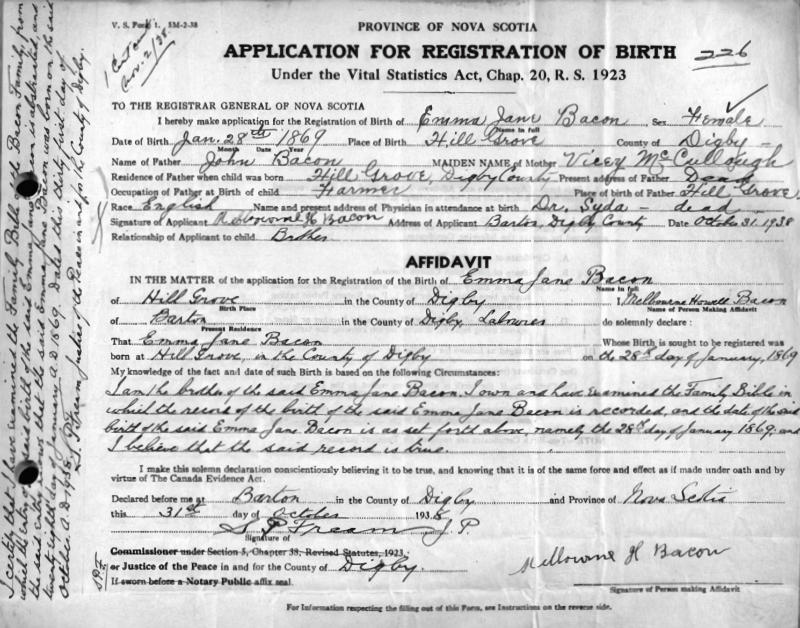 V. S. Form 1. 5M-2-38
PROVINCE OF NOVA SCOTIA
APPLICATION FOR REGISTRATION OF BIRTH 226
Under the Vital Statistics Act, Chap. 20, R. S. 1923
1 Cert
Nov. 2/38.
TO THE REGISTRAR GENERAL OF NOVA SCOTIA
I hereby make application for the Registration of Birth of Emma Jane Bacon Sex Female
Name in full
Date of Birth Jan. 28th 1869 Place of Birth Hill Grove County of Digby -
Month Date Year
Name of Father John Bacon MAIDEN NAME of Mother Vicey McCullough
Residence of Father when child was born Hill Grove, Digby County Present address of Father Dead
Occupation of Father at Birth of child Farmer Place of birth of Father Hill Grove
Race English Name and present address of Physician in attendance at birth Dr. Syda - dead
Signature of Applicant Melbourne H Bacon Address of Applicant Barton, Digby County Date October 31. 1938
Relationship of Applicant to child Brother
AFFIDAVIT
IN THE MATTER of the application for the Registration of the Birth of Emma Jane Bacon
Name in full
of Hill Grove in the County of Digby I Mellbourne Howell Bacon
Birth Place Name of Person Making Affidavit
of Barton in the County of Digby Labourer do solemnly declare :
Present Residence
That Emma Jane Bacon Whose Birth is sought to be registered was
born at Hill Grove, in the County of Digby on the 28th day of January, 1869
My knowledge of the fact and date of such Birth is based on the following Circumstances:
I am the brother of the said Emma Jane Bacon. I own and have examined the Family Bible in
which the record of the birth of the said Emma Jane Bacon is recorded, and the date of the said
birth of the said Emma Jane Bacon is as set forth above, namely the 28th day of January 1869; and
I believe that the said record is true.
I make this solemn declaration conscientiously believing it to be true, and knowing that it is of the same force and effect as if made under oath and by
virtue of The Canada Evidence Act.
Declared before me at Barton in the County of Digby and Province of Nova Scotia
this 31st day of October 1938
S P Fream J. P.
Signature of
Commissioner under Section 5, Chapter 38, Revised Statutes, 1923.
or Justice of the Peace in and for the County of Digby.
If sworn before a Notary Public affix seal.
Mellourne H Bacon
Signature of Person making Affidavit
For Information respecting the filling out of this Form, see Instructions on the reverse side.
I certify that I have examined the Family Bible of the Bacon Family, from
which the entry of the said birth of the said Emma Jane Bacon is abstracted, and
the said entry shows that the said Emma Jane Bacon was born on the said
twenty eighth day of January A.D. 1869. Dated this thirty first day of
October A.D. 1938. S. P. Fream Justice of the Peace in and for the County of Digby.